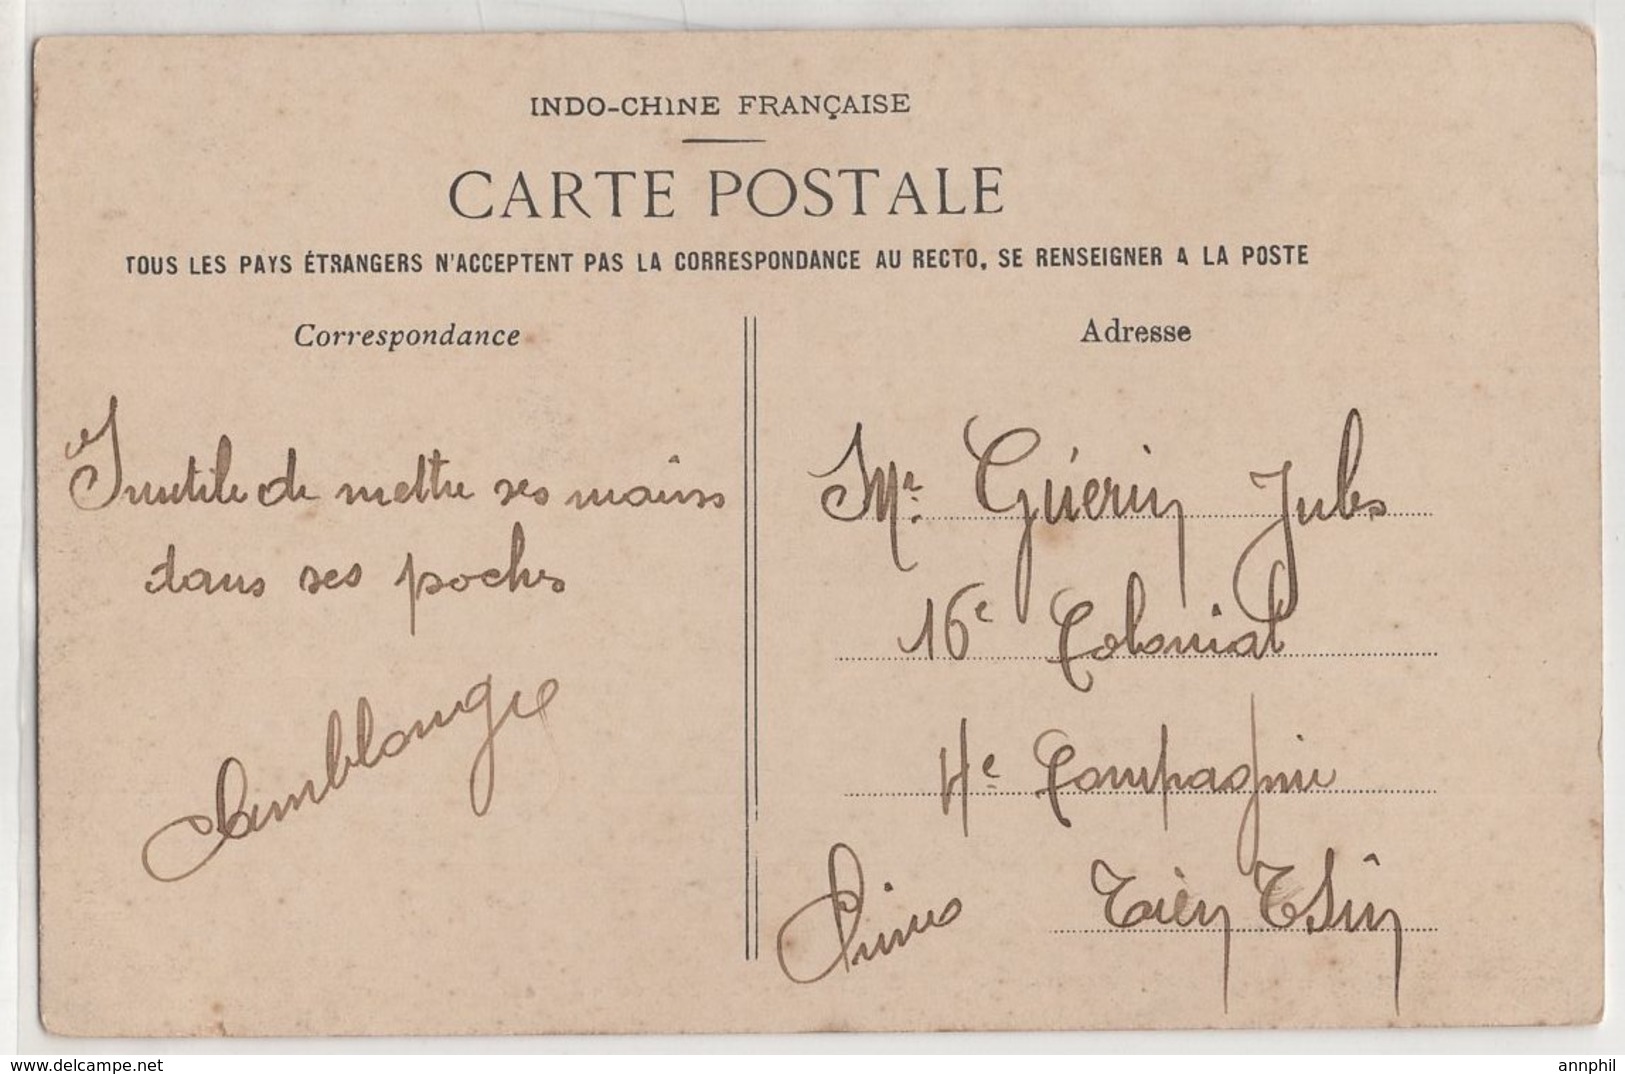 INDO-CHINE FRANÇAISE
CARTE POSTALE
TOUS LES PAYS ÉTRANGERS N'ACCEPTENT PAS LA CORRESPONDANCE AU RECTO, SE RENSEIGNER A LA POSTE
Correspondance
Inutile de mettre ses mains
dans ses poches
Adresse
Mr. Guérin Jules
16e Colonial
4e Compagnie
Chine Tièn Tsîn
www.delcampe.net
annphil